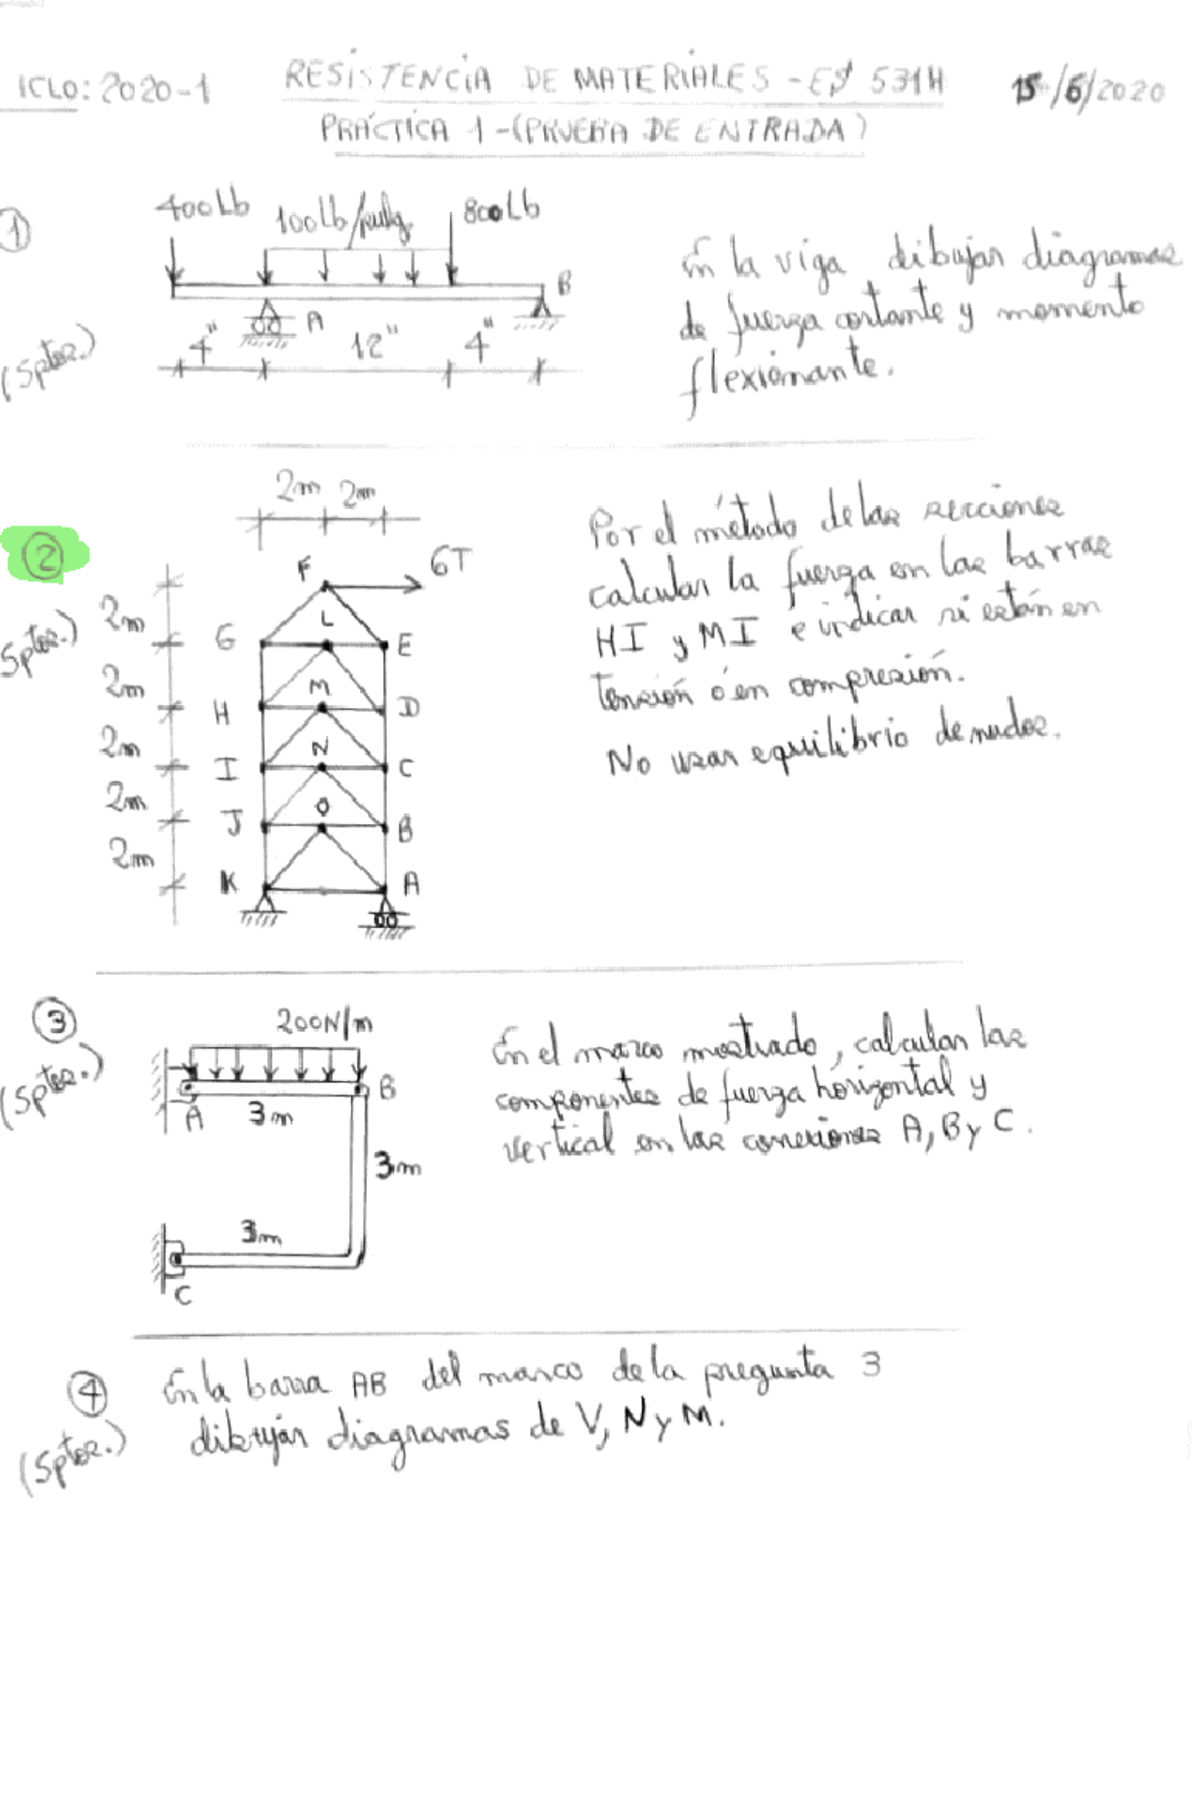 ICLO: 2020-1
RESISTENCIA DE MATERIALES - ES 531H
15/6/2020
PRÁCTICA 1 - (PRUEBA DE ENTRADA)
1
(5ptos.)
400Lb
100lb/pulg.
800Lb
A
B
4"
12"
4"
En la viga dibujar diagramas
de fuerza cortante y momento
flexionante.
2
5ptos.)
2m 2m
F
6T
2m
G
L
E
2m
H
M
D
2m
I
N
C
2m
J
O
B
2m
K
A
Por el método de las secciones
calcular la fuerza en las barras
HI y MI e indicar si están en
tensión ó en compresión.
No usar equilibrio de nudos.
3
(5ptos.)
200N/m
A
3m
B
3m
3m
C
En el marco mostrado, calcular las
componentes de fuerza horizontal y
vertical en las conexiones A, B y C.
4
(5ptos.)
En la barra AB del marco de la pregunta 3
dibujar diagramas de V, N y M.